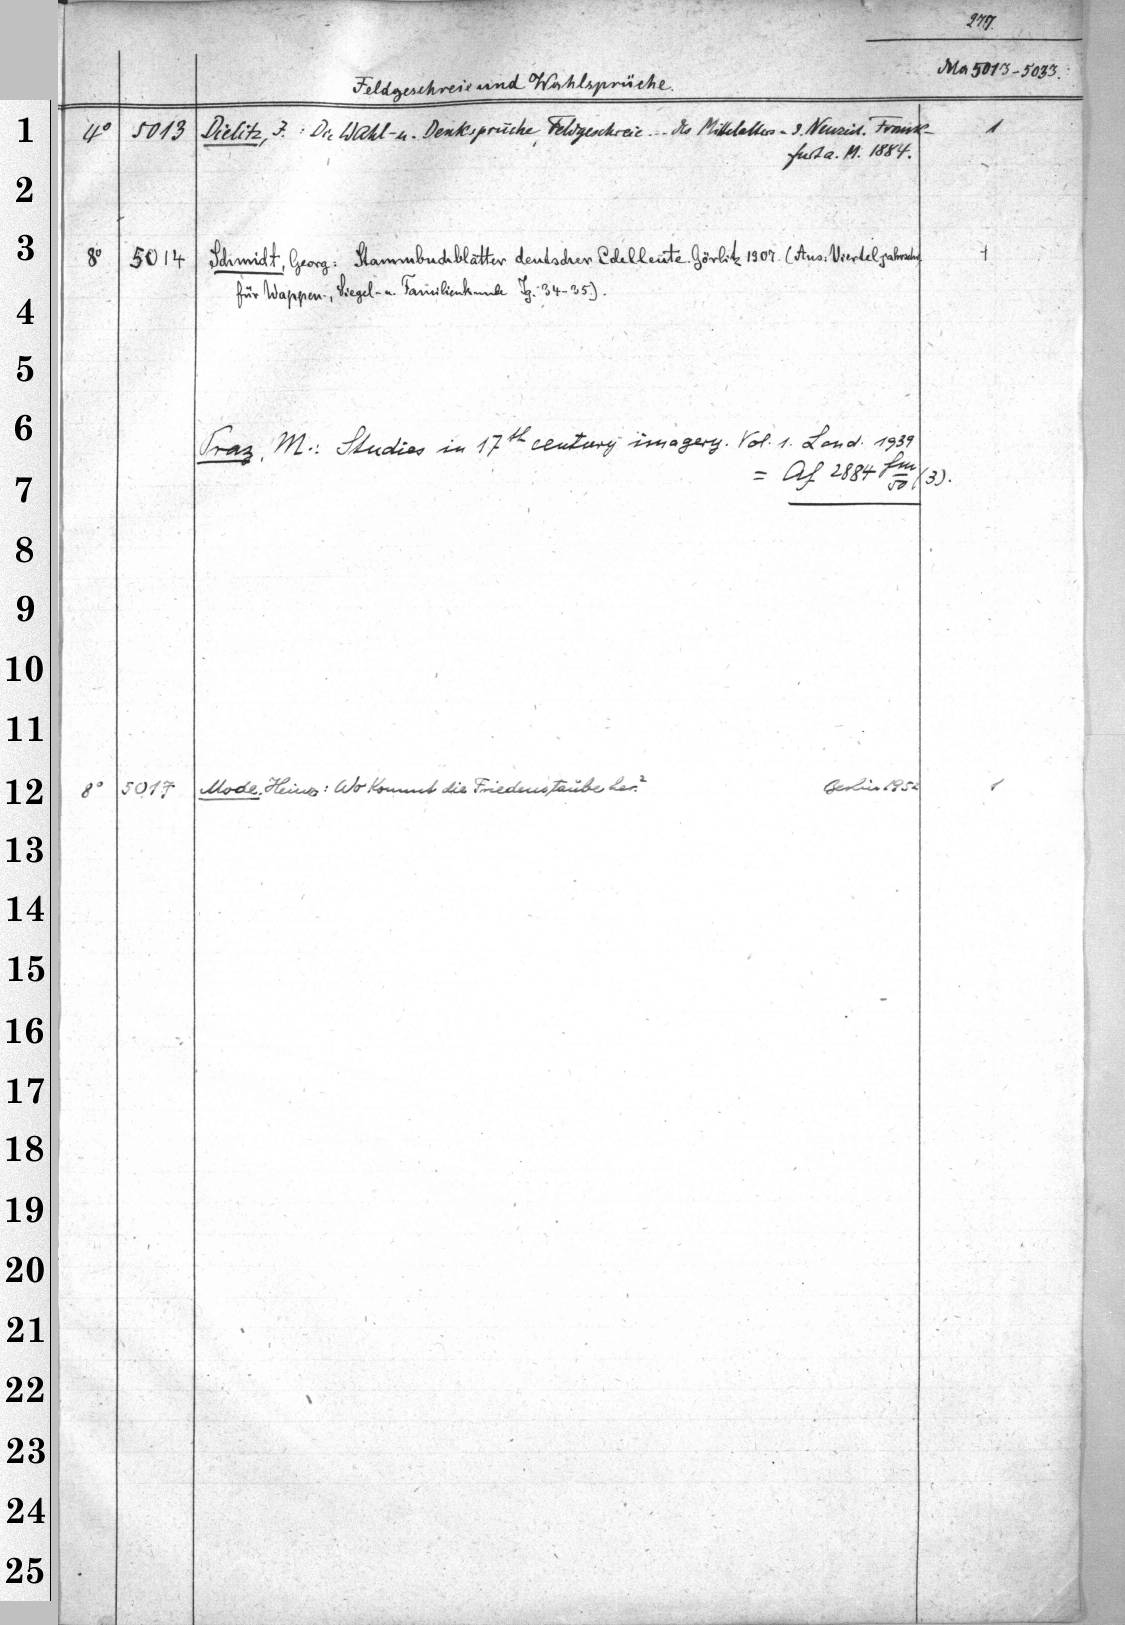 277.
Ma 5013-5033.
Feldgeschreie und Wahlsprüche.
1 4° 5013 Dielitz, J.: Die Wahl- u. Denksprüche, Feldgeschreie ... des Mittelalters u. d. Neuzeit. Frank- 1
furt a. M. 1884.
2
3 8° 5014 Schmidt, Georg: Stammbuchblätter deutscher Edelleute. Görlitz 1907. (Aus: Vierteljahrschr. 1
4 für Wappen-, Siegel- u. Familienkunde Jg. 34-35).
5
6 Praz, M.: Studies in 17th century imagery. Vol. 1. Lond. 1939
7 = Af 2884 fm/50 (3).
8
9
10
11
12 8° 5017 Mode, Heinz: Wo kommt die Friedenstaube her? Berlin 1952 1
13
14
15
16
17
18
19
20
21
22
23
24
25